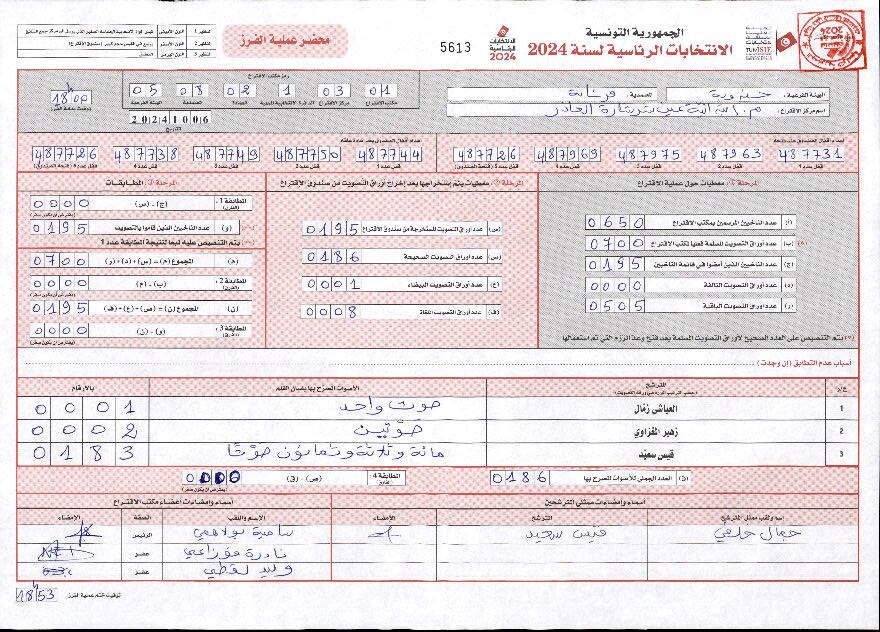 الجمهورية التونسية
الانتخابات الرئاسية لسنة 2024
5613
الانتخابات الرئاسية 2024
محضر عملية الفرز
الهيئة الفرعية: جندوبة
العمادة: فرنانة
اسم مركز الاقتراع:
رمز مكتب الاقتراع
01 03 1 02 08 05
مكتب الاقتراع مركز الاقتراع الدائرة الانتخابية المعتمدية الهيئة الفرعية
20241006
التاريخ
18h00
487731 487963 487975 487969 487726
487744 487750 487749 487738 487726
المرحلة 1: معطيات حول عملية الاقتراع
(أ) عدد الناخبين المرسمين بمكتب الاقتراع 0650
(ب) عدد أوراق التصويت المسلمة قبلها لمكتب الاقتراع 0700
(ج) عدد الناخبين الذين أمضوا في قائمة الناخبين 0195
(د) عدد أوراق التصويت التالفة 0000
(ر) عدد أوراق التصويت الباقية 0505
المرحلة 2: معطيات يتم استخراجها بعد إخراج أوراق التصويت من صندوق الاقتراع
(س) عدد أوراق التصويت المستخرجة من صندوق الاقتراع 0195
(ص) عدد أوراق التصويت الصحيحة 0186
(ع) عدد أوراق التصويت البيضاء 0001
(ف) عدد أوراق التصويت الملغاة 0008
المرحلة 3: المطابقات
المطابقة 1: (ج) - (س) 0000
(و) عدد الناخبين الذين قاموا بالتصويت 0195
يتم التنصيص عليه تبعا لنتيجة المطابقة عدد 1
(م) المجموع (م) = (س) + (د) + (ر) 0700
المطابقة 2: (ب) - (م) 0000
(ن) المجموع (ن) = (ص) + (ع) + (ف) 0195
المطابقة 3: (و) - (ن) 0000
أسباب عدم التطابق (إن وجدت):
ع/ر المترشح الأصوات المصرح بها بلسان القلم بالأرقام
1 العياشي زمال صوت واحد 0001
2 زهير المغزاوي صوتين 0002
3 قيس سعيد مائة وثلاثة وثمانون صوتا 0183
العدد الجملي للأصوات المصرح بها 0186
المطابقة 4: 0000
أسماء وإمضاءات ممثلي المترشحين
أسماء وإمضاءات أعضاء مكتب الاقتراع
اسم ولقب ممثل المترشح المترشح الإمضاء الاسم واللقب الصفة الإمضاء
قيس سعيد الرئيس
عضو
عضو
توقيت ختم عملية الفرز 18h53